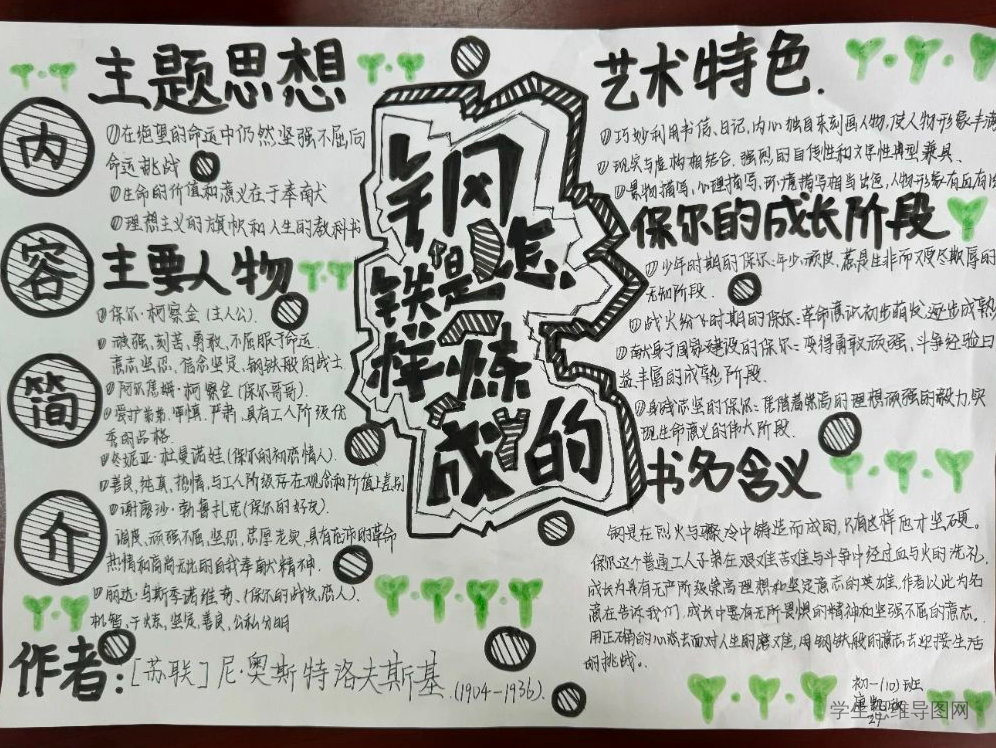 内
容
简
介
主题思想
①在绝望的命运中仍然坚强不屈向
命运挑战
②生命的价值和意义在于奉献
③理想主义的旗帜和人生的教科书
主要人物
①保尔·柯察金(主人公).
顽强,刻苦,勇敢,不屈服于命运.
意志坚忍,信念坚定,钢铁般的战士
②阿尔焦姆·柯察金(保尔哥哥).
严肃.具有工人阶级优
秀的品格.
③冬妮亚·杜曼诺娃(保尔的初恋情人).
善良,纯真,热情,与工人阶级存在观念和价值上差别
④谢廖沙·勃鲁扎克(保尔的好友).
顽强不屈,坚忍,忠厚老实,具有
热情和高尚无比的自我奉献精神.
⑤丽达·乌斯季诺维奇.(保尔的战友,恋人).
机智,干练,坚定,善良,公私分明
作者:[苏联]尼·奥斯特洛夫斯基.(1904-1936).
钢
铁是怎
样炼
成的
艺术特色.
①巧妙利用书信、日记,内心独白来刻画人物,使人物形象丰满
②现实与虚构相结合.强烈的自传性和文学性典型兼具.
③景物描写,心理描写,环境描写相当出色,人物形象有血有肉
保尔的成长阶段
①少年时期的保尔:年少,顽皮、惹是生非而又受尽欺辱的
无知阶段.
②战火纷飞时期的保尔:革命意识初步萌发,逐步成熟
③献身于国家建设的保尔:变得勇敢顽强、斗争经验日
益丰富的成熟阶段.
④身残志坚的保尔:凭借着崇高的理想顽强的毅力,实
现生命意义的伟大阶段.
书名含义
钢是在烈火与骤冷中铸造而成的,只有这样他才坚硬.
保尔这个普通工人子弟在艰难苦难与斗争中经过血与火的洗礼,
成长为具有无产阶级崇高理想和坚定意志的英雄.作者以此为名
意在告诉我们,成长中要有无所畏惧的精神和坚强不屈的意志.
用正确的心态去面对人生的磨难,用钢铁般的意志去迎接生活
的挑战。
初一(10)班
29
学生思维导图网